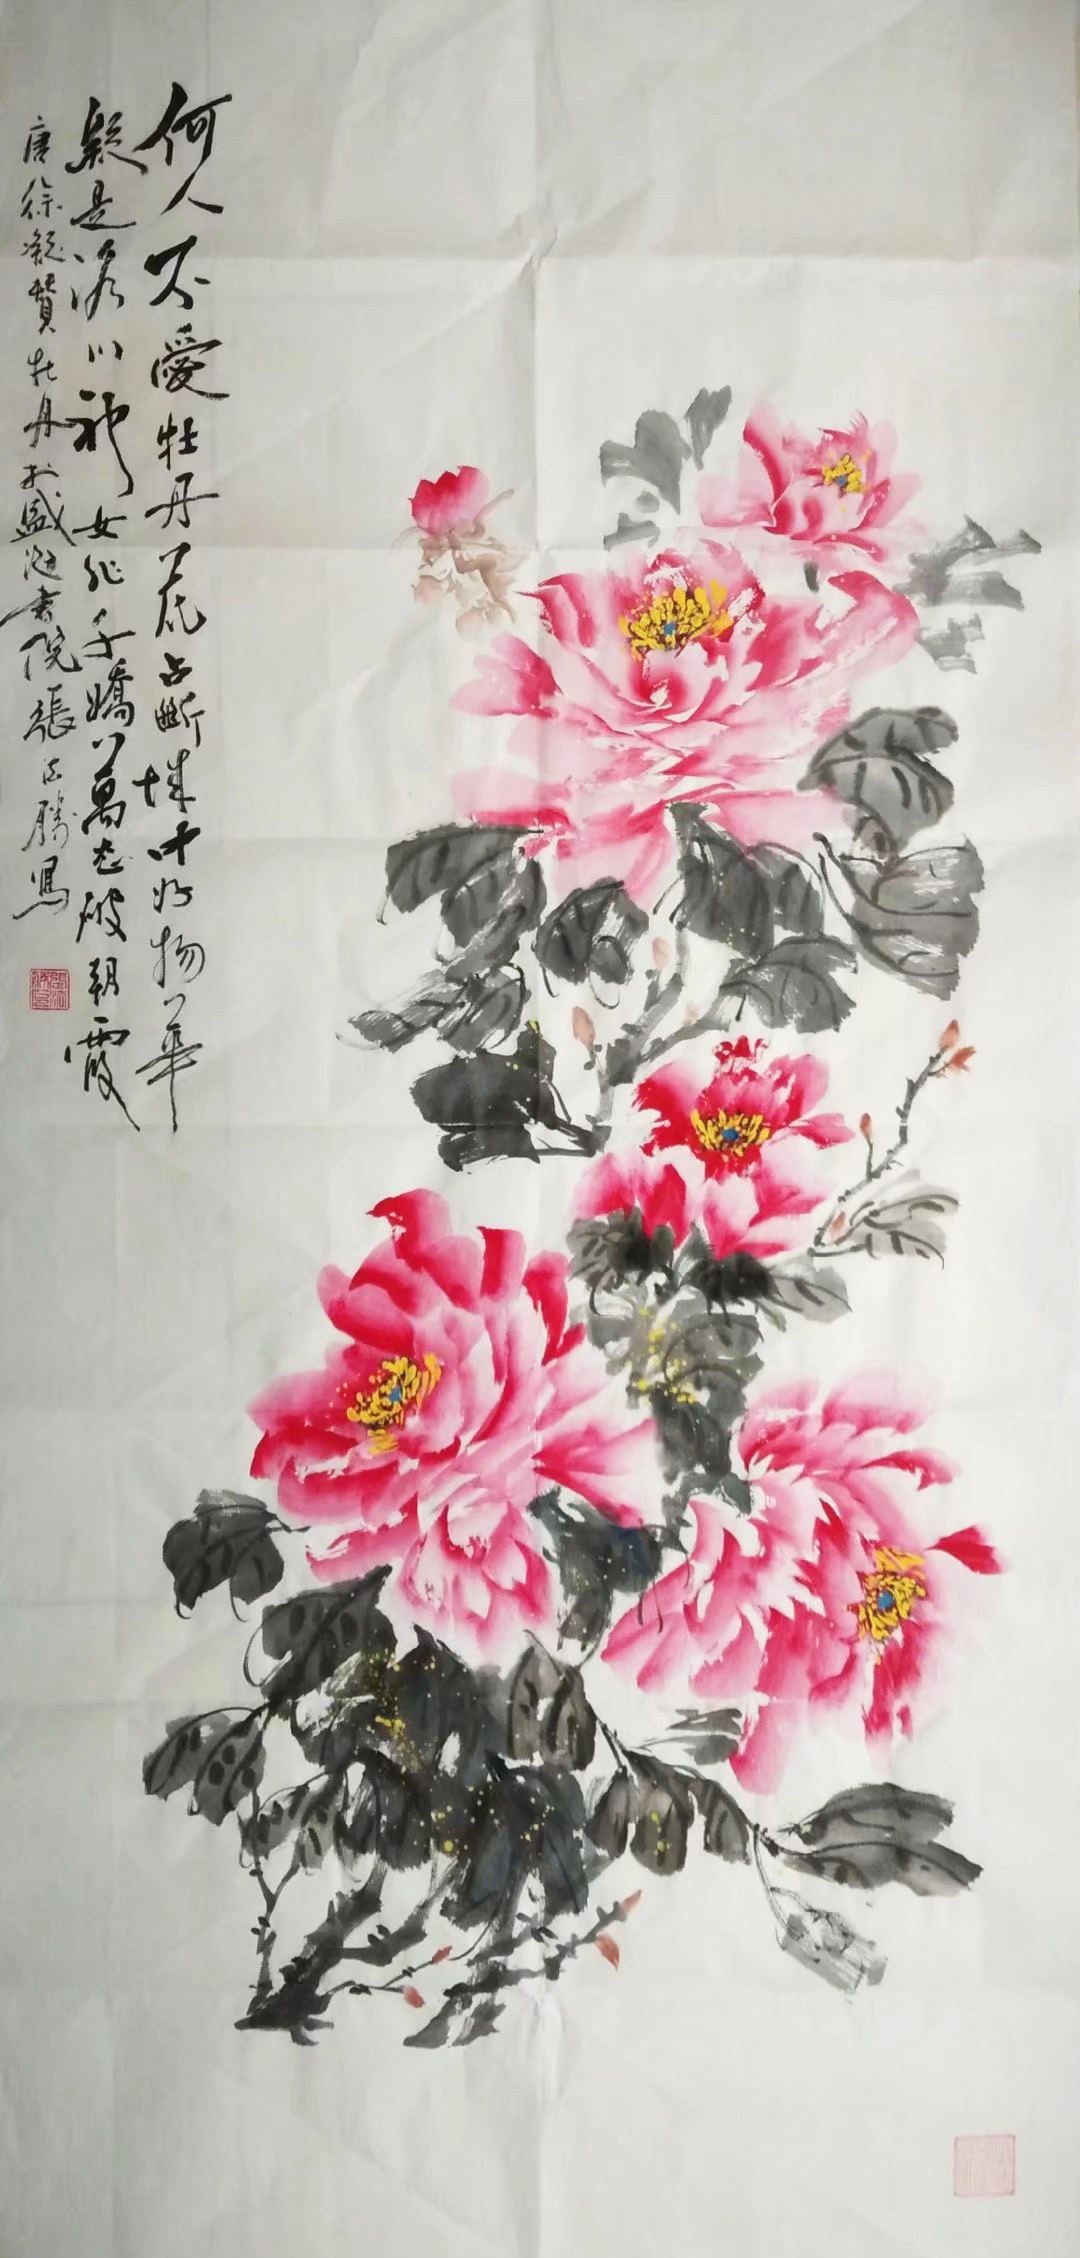 何人不愛牡丹花占斷城中好物華
疑是洛川神女作千嬌萬態破朝霞
唐徐凝賛牡丹於盛池書院張正勝寫